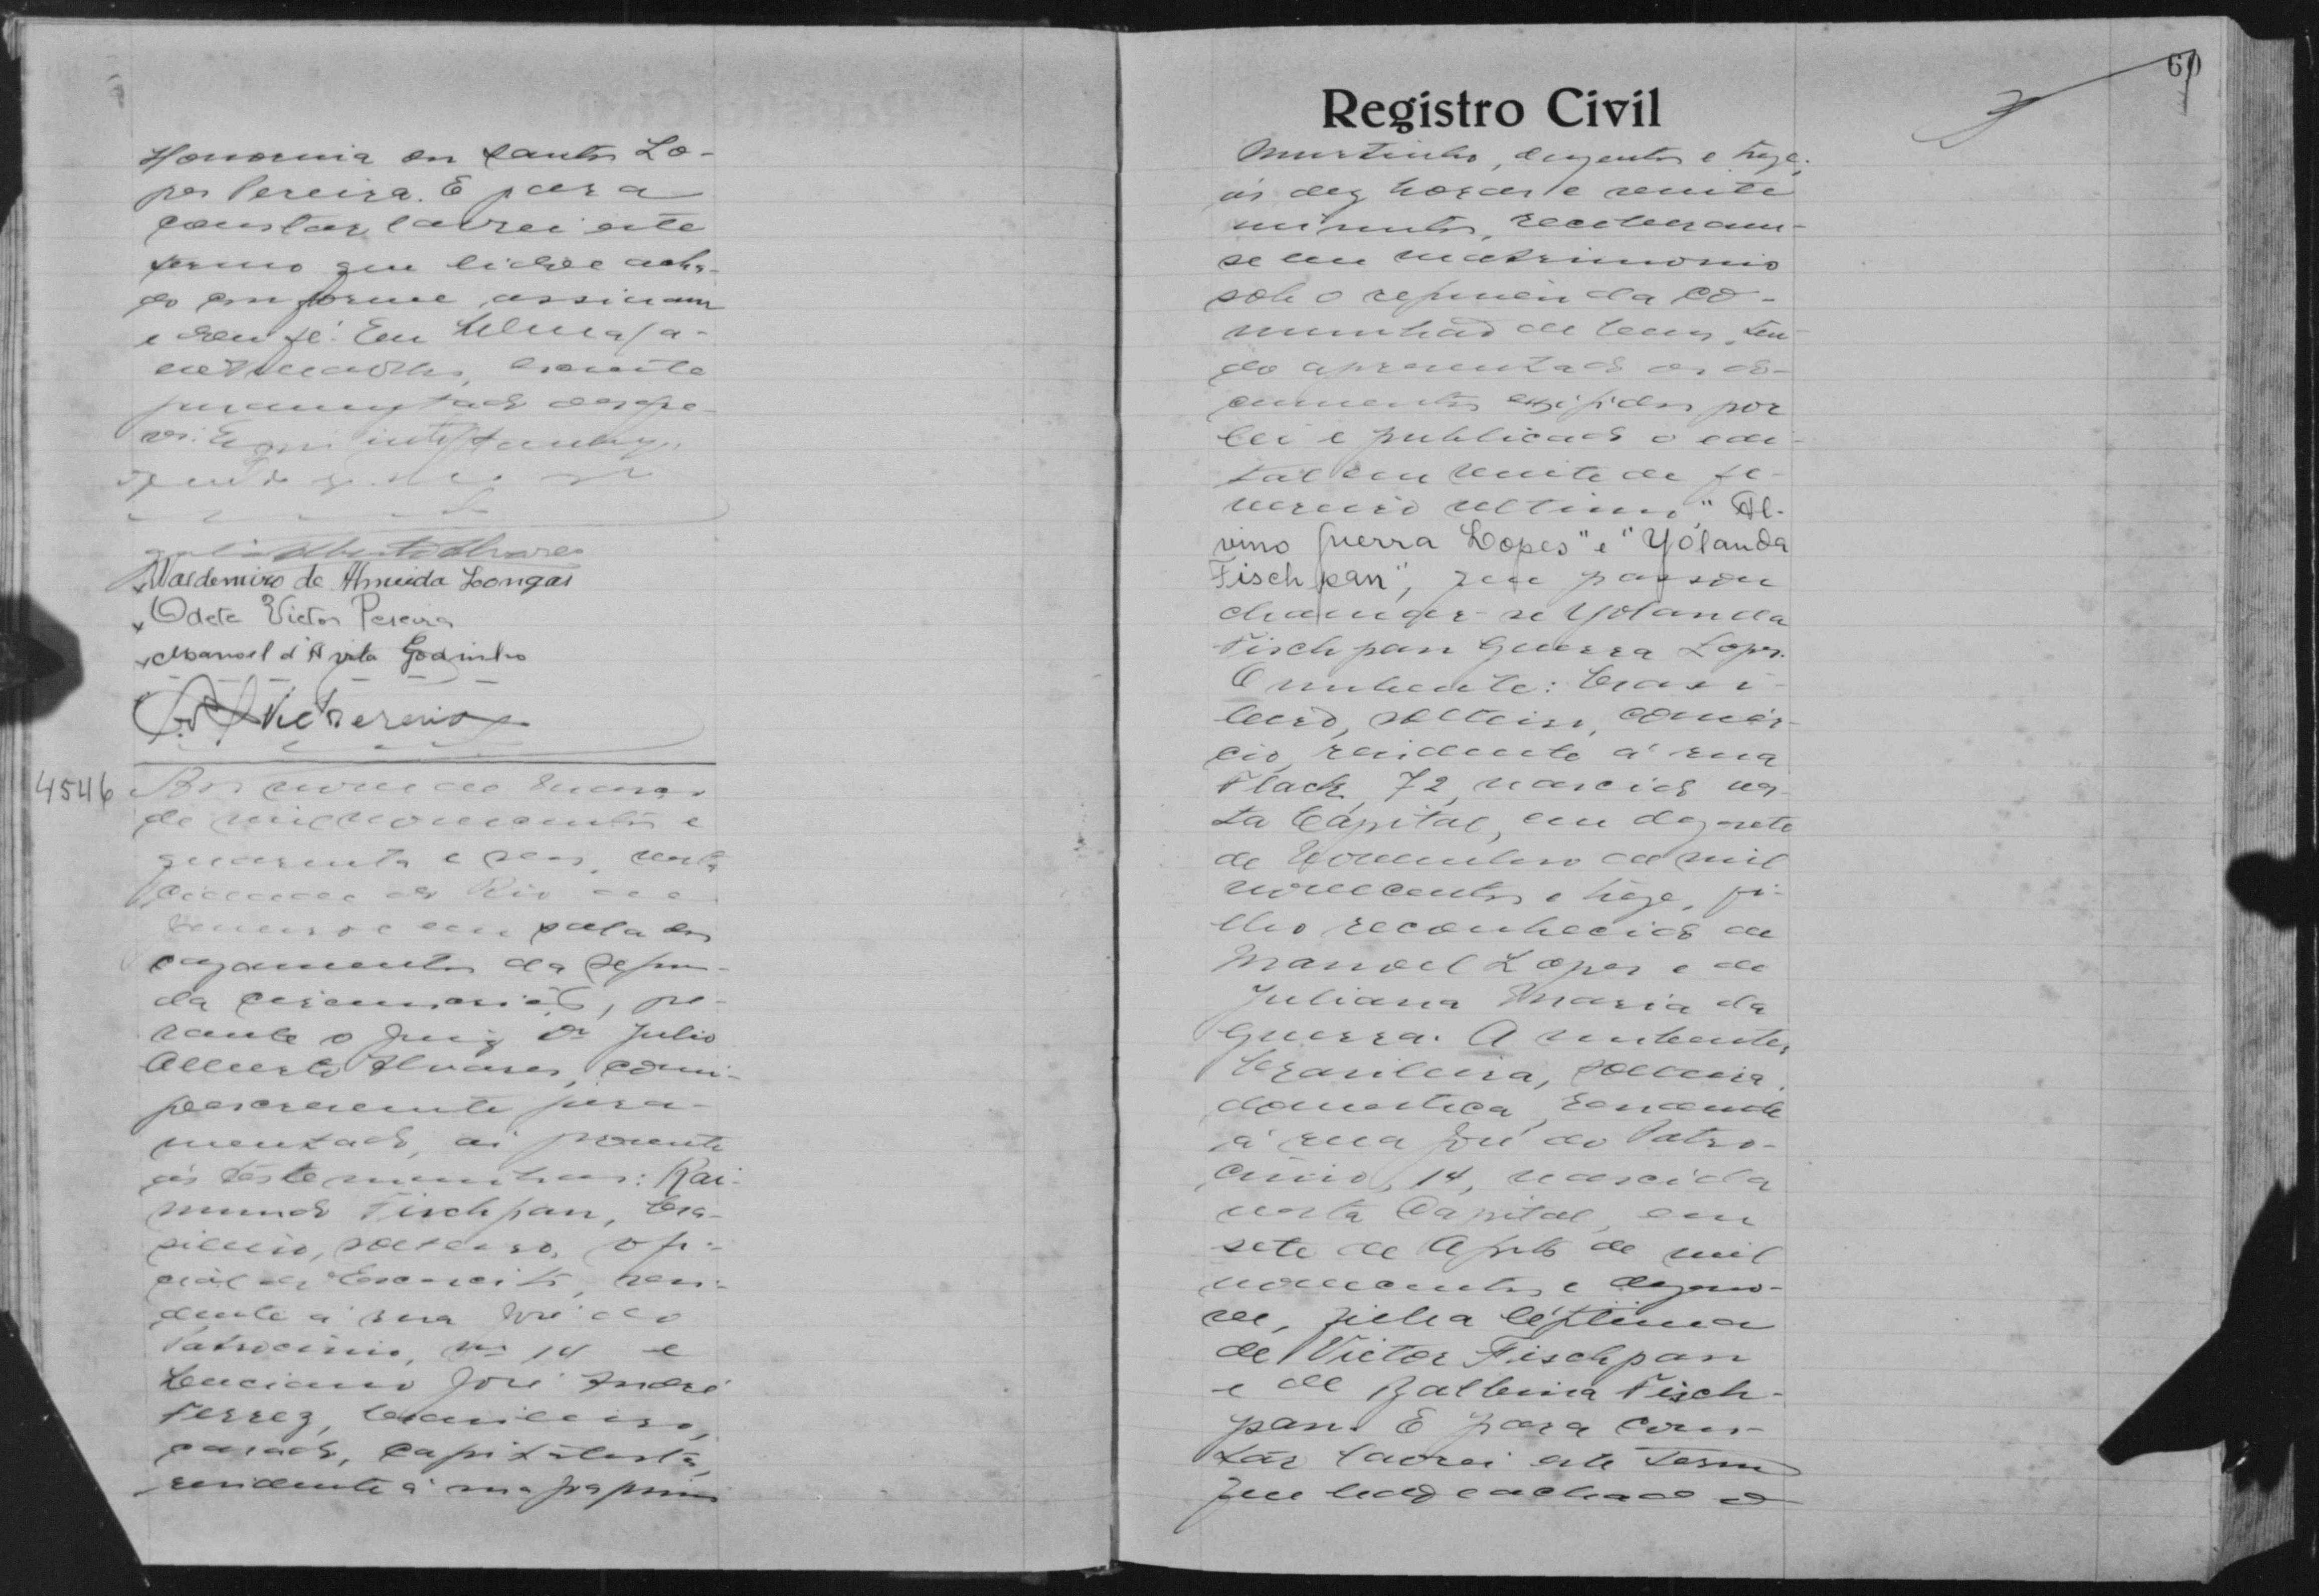 Honorina dos Santos Lo-
pes Pereira. E para
constar lavrei este
termo que lido e acha-
do conforme, assinam
e dou fé. Eu
juramentado
Valdemiro de Almeida Longas
Odete Victor Pereira
Manoel d'Avila Godinho
4546
Aos nove de março
de mil novecentos e
quarenta e seis, nesta
cidade do Rio de
Janeiro e em sala dos
casamentos da segun-
da circunscrição, pe-
rante o Juiz Dr Julio
Alberto Alvares, comi-
juramentado
mentado, ai presente
as testemunhas: Rai-
mundo Fischpan, bra-
sileiro, solteiro, ofi-
cial do Exercito, resi-
dente á rua José do
Patrocinio, nº 14 e
Luciano José André
Ferrez, brasileiro,
casado, capitalista,
residente á rua
60
Registro Civil
Murtinho, duzentos e treze,
ás dez horas e vinte
minutos, receberam-
se em matrimonio
sob o regimen da co-
munhão de bens, ten-
do apresentado os do-
cumentos exigidos por
lei e publicado o edi-
tal em vinte de fe-
vereiro ultimo, "Al-
vino Guerra Lopes" e "Yolanda
Fischpan", que passou
chamar-se Yolanda
Fischpan Guerra Lopes.
O nubente: brasi-
leiro, solteiro, comér-
cio, residente á rua
Flack, 72, nascido nes-
ta Capital, em dezesete
de Novembro de mil
novecentos e treze, fi-
lho reconhecido de
Manoel Lopes e de
Juliana Maria da
Guerra. A nubente,
brasileira, solteira,
domestica, residente
á rua José do Patro-
cinio, 14, nascida
nesta Capital, em
sete de Agosto de mil
novecentos e dezeno-
ve, filha legitima
de Victor Fischpan
e de Balbina Fisch-
pan. E para cons-
tar lavrei este termo
que lido e achado